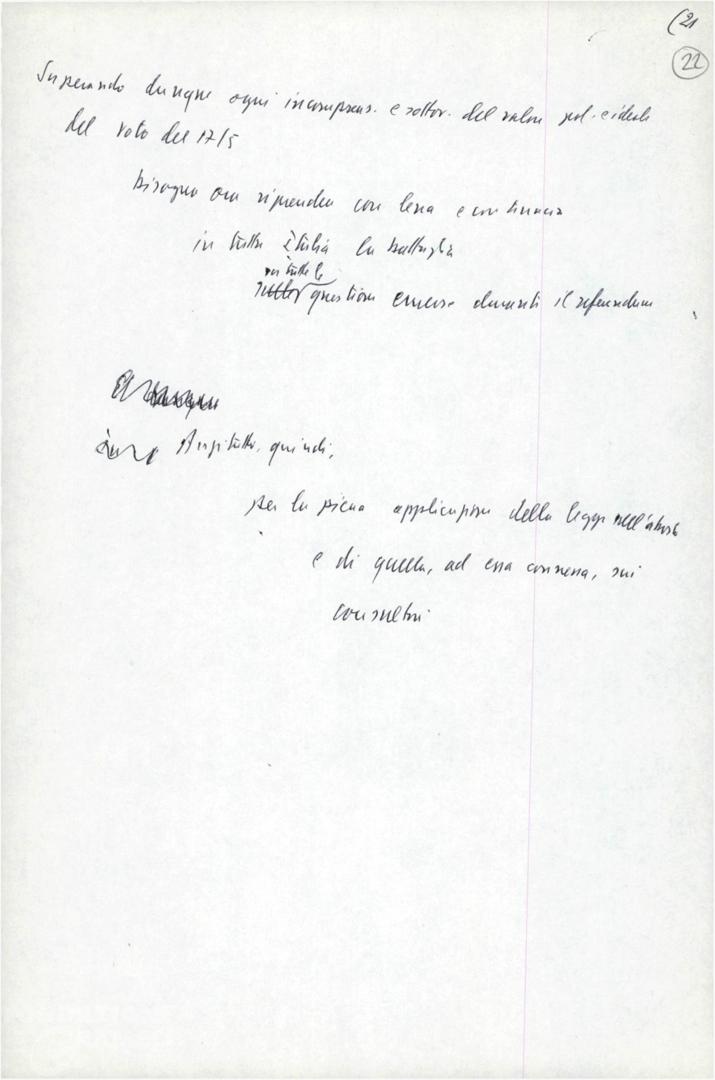 (21
22
Superando dunque ogni incomprens. e sottov. del valore pol. e ideale
del voto del 17/5
bisogna ora riprendere con lena e continuità
in tutta Italia la battaglia
su tutte le
sulle questioni emerse durante il referendum
Anzitutto, quindi,
per la piena applicazione della legge sull'aborto
e di quella, ad essa connessa, sui
consultori